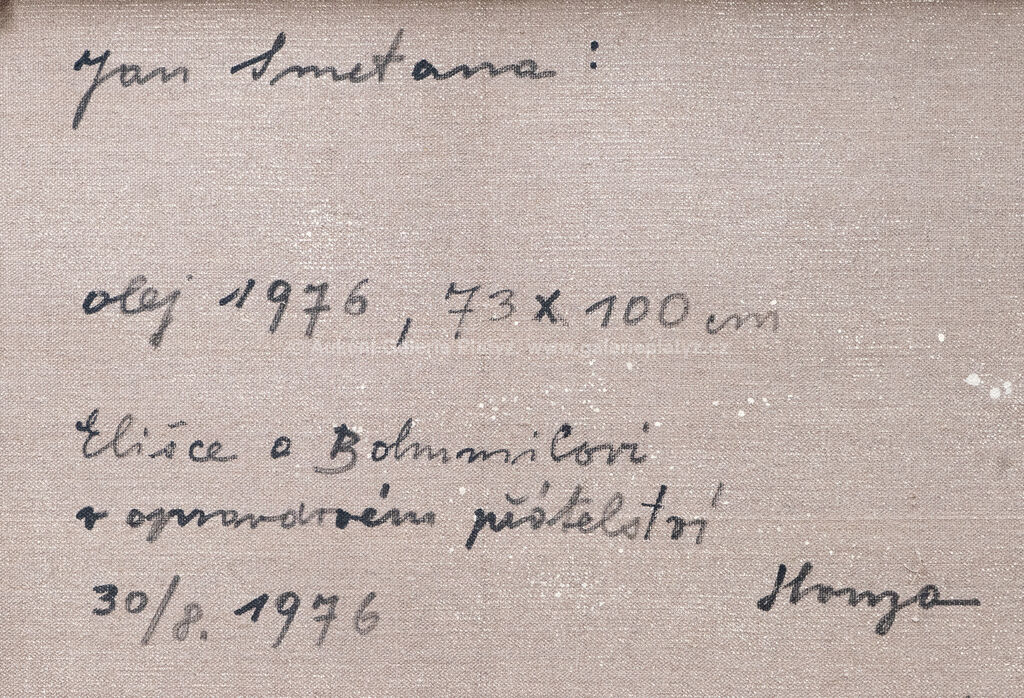 Jan Smetana :
olej 1976, 73 x 100 cm
Aukční Galerie Platýz www.galerieplatyz.cz
Elišce a Bohumilovi
v opravdovém přátelství
30/8. 1976 Honza